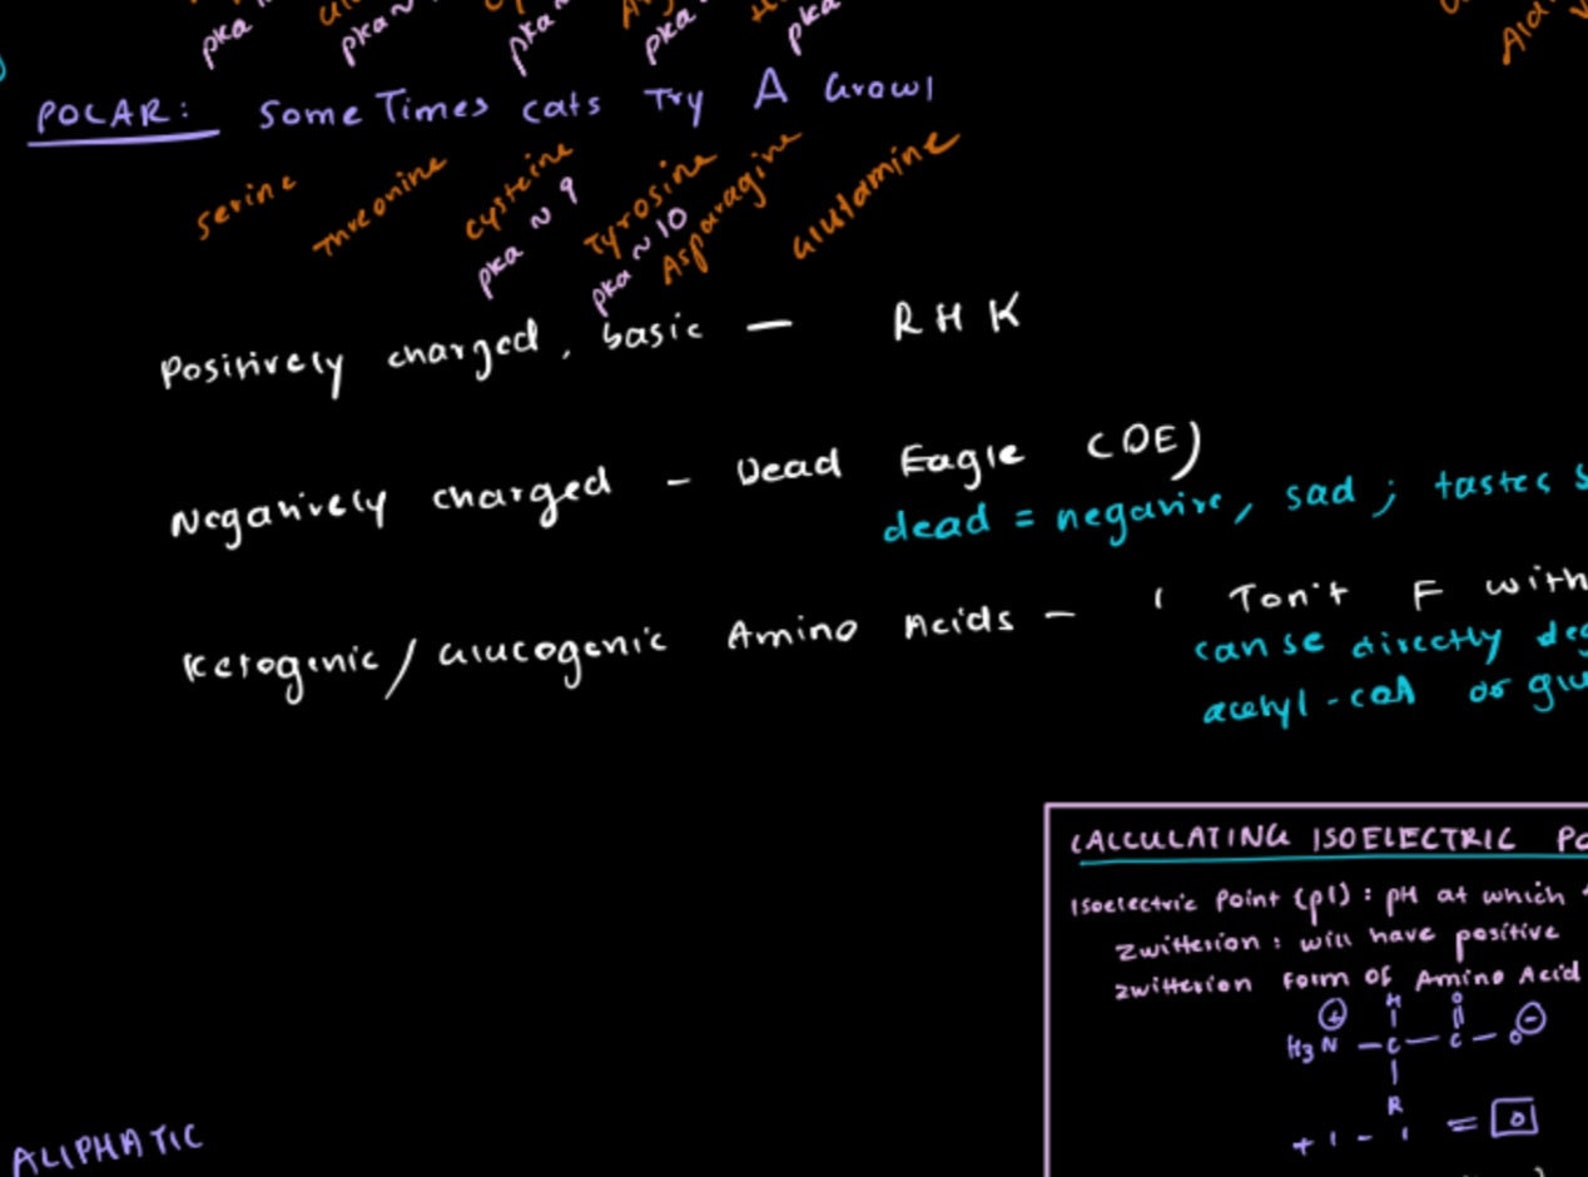 pka
pka ~
pka ~
pka ~
pka
POLAR: Some Times cats Try A Growl
serine
Threonine
cysteine
pka ~ 9
Tyrosine
pka ~ 10
Asparagine
Glutamine
Positively charged, basic — R H K
Negatively charged - Dead Eagle (DE)
dead = negative, sad; tastes s
Ketogenic/Glucogenic Amino Acids - I Ton't F with
can be directly deg
acetyl-coA or glu
CALCULATING ISOELECTRIC PO
Isoelectric Point (pI): pH at which
zwitterion: will have positive
zwitterion form of Amino Acid
+ H O -
H3N - C - C - O
R
+1 -1 = 0
ALIPHATIC